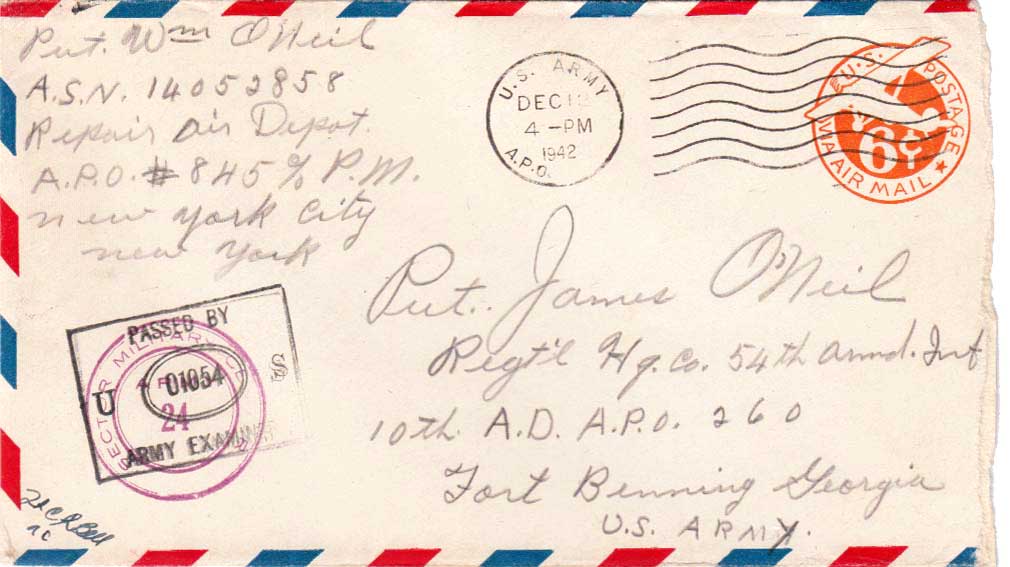 Pvt. Wm O'Neil
A.S.N. 14052858
Repair Air Depot.
A.P.O. # 845 % P.M.
New York City
New York
U.S. ARMY
DEC 12
4 - PM
1942
A.P.O.
U.S. POSTAGE
6¢
VIA AIR MAIL
Pvt. James O'Neil
Reg't'l Hq. Co. 54th Armd. Inf
10th A.D. A.P.O. 260
Fort Benning Georgia
U.S. ARMY.
PASSED BY
MILITARY
U
01054
24
ARMY EXAMINER